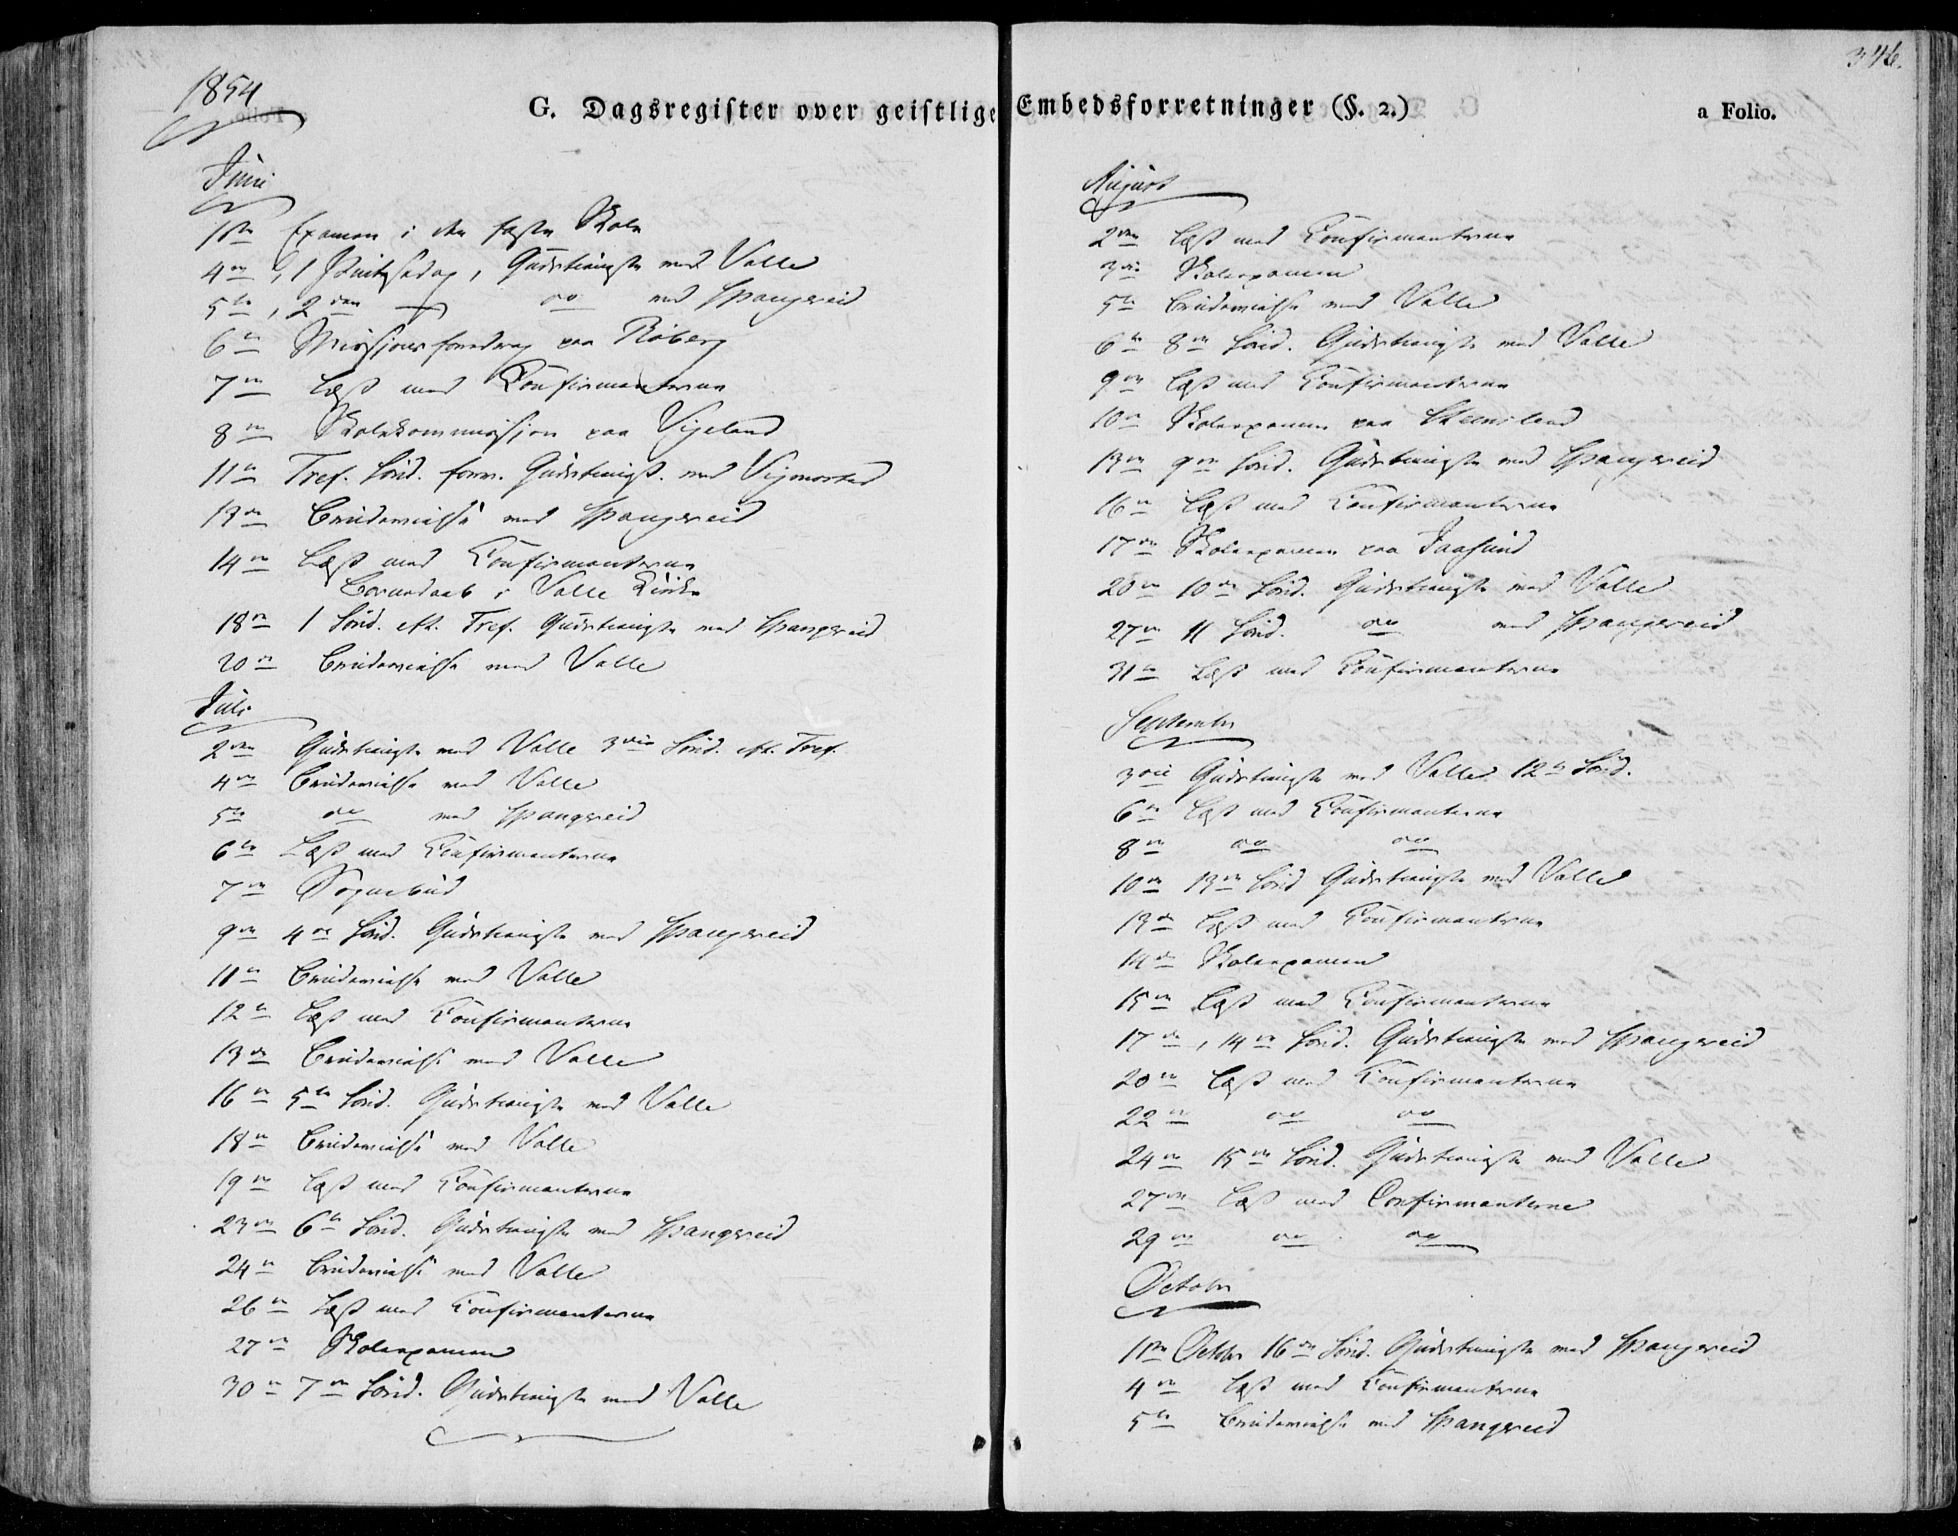 1854
G. Dagsregister over geistlige Embedsforretninger (§. 2.)
a Folio.
346.
Juni
1ste Examen i den faste Skole
4de, 1 Pintsedag, Gudstieneste ved Valle
5te, 2den do ved Spangereid
6te Missjonsforedrag paa
7de Læst med Konfirmanterne
8de Skolekommissjon paa Vigeland
11te Tref. Sönd. forr. Gudstienest. ved Vigmostad
13de Brudevielse ved Spangereid
14de Læst med Konfirmanterne
Barnedaab i Valle Kirke
18de 1 Sönd. eft. Tref. Gudstieneste ved Spangereid
20de Brudevielse ved Valle
Juli
2den Gudstieneste ved Valle 3die Sönd. eft. Tref.
4de Brudevielse ved Valle
5te do ved Spangereid
6te Læst med Konfirmanterne
7de Sognebud
9de 4de Sönd. Gudstieneste ved Spangereid
11te Brudevielse ved Valle
12te Læst med Konfirmanterne
13de Brudevielse ved Valle
16de 5te Sönd. Gudstieneste ved Valle
18de Brudevielse ved Valle
19de Læst med Konfirmanterne
23de 6te Sönd. Gudstieneste ved Spangereid
24de Brudevielse ved Valle
26de Læst med Konfirmanterne
27de Skolexamen
30te 7de Sönd. Gudstieneste ved Valle
August
2den Læst med Konfirmanterne
3die Skolexamen
5te Brudevielse ved Valle
6te 8de Sönd. Gudstieneste ved Valle
9de Læst med Konfirmanterne
10de Skolexamen paa
13de 9de Sönd. Gudstieneste ved Spangereid
16de Læst med Konfirmanterne
17de Skolexamen paa Jaasund
20de 10de Sönd. Gudstieneste ved Valle
27de 11 Sönd. do ved Spangereid
31te Læst med Konfirmanterne
September
3die Gudstieneste ved Valle 12te Sönd.
6te Læst med Konfirmanterne
8de do do
10de 13de Sönd Gudstieneste ved Valle
13de Læst med Konfirmanterne
14de Skolexamen
15de Læst med Konfirmanterne
17de, 14de Sönd. Gudstieneste ved Spangereid
20de Læst med Konfirmanterne
22de do do
24de 15de Sönd. Gudstieneste ved Valle
27de Læst med Confirmanterne
29de do do
October
1ste October 16de Sönd. Gudstieneste ved Spangereid
4de Læst med Konfirmanterne
5te Brudevielse ved Spangereid